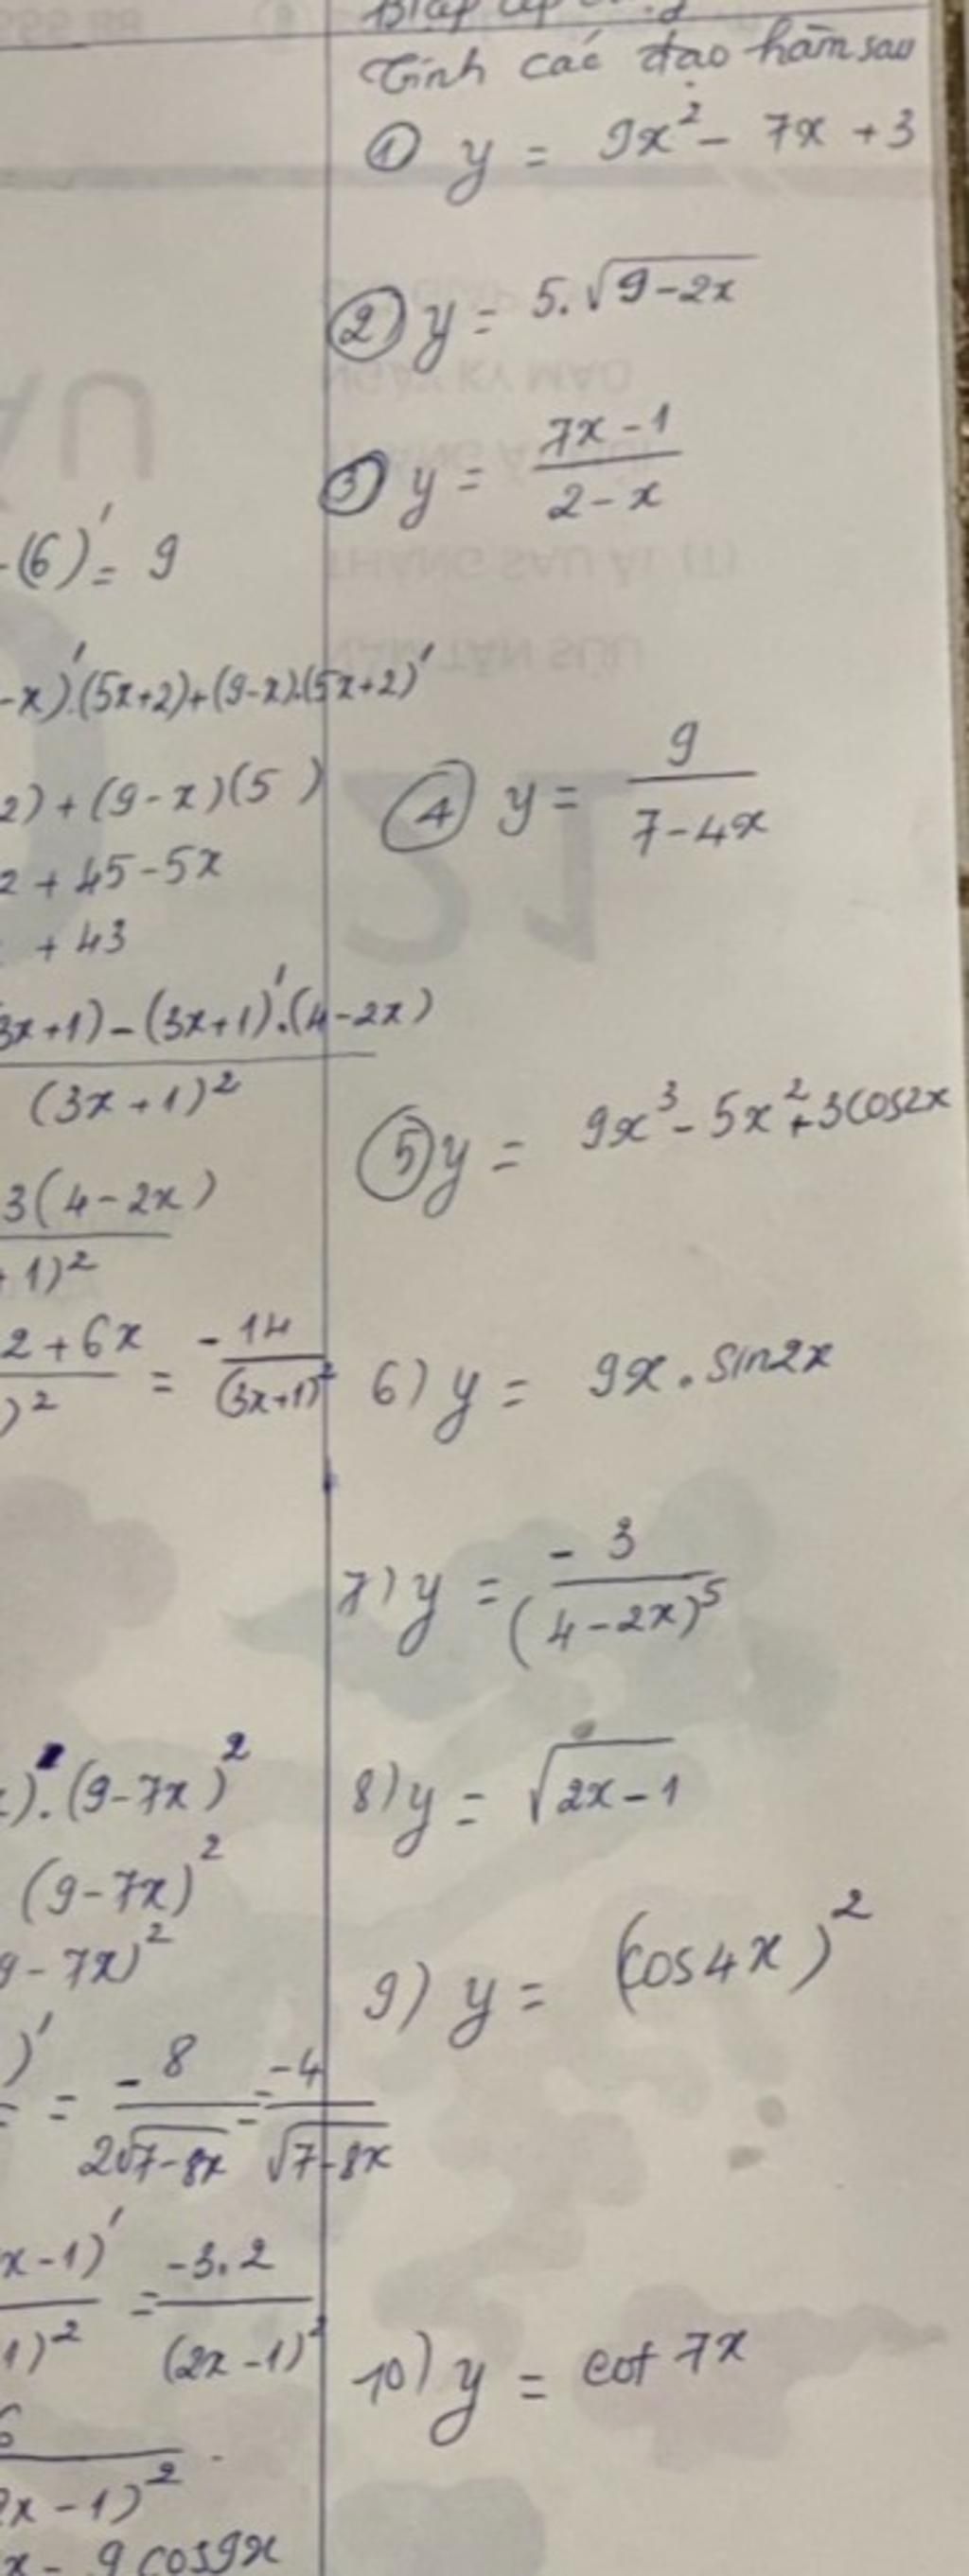 Tính các đạo hàm sau
① y = 9x² - 7x + 3
② y = 5.√(9-2x)
③ y = (7x-1)/(2-x)
④ y = 9/(7-4x)
⑤ y = 9x³ - 5x² + 3cos2x
6) y = 9x . sin2x
7) y = -3/(4-2x)⁵
8) y = √(2x-1)
9) y = (cos4x)²
10) y = cot 7x
-(6)' = 9
-x)'.(5x+2)+(9-x).(5x+2)'
2)+(9-x)(5 )
2 + 45-5x
+ 43
3x+1)-(3x+1)'.(4-2x)
(3x+1)²
3(4-2x)
+1)²
2+6x = -14
)² (3x+1)²
).(9-7x)²
(9-7x)²
9-7x)²
)' = -8 = -4
2√7-8x √7-8x
x-1)' = -3.2
1)² (2x-1)²
6
2x-1)²
x - 9cos9x